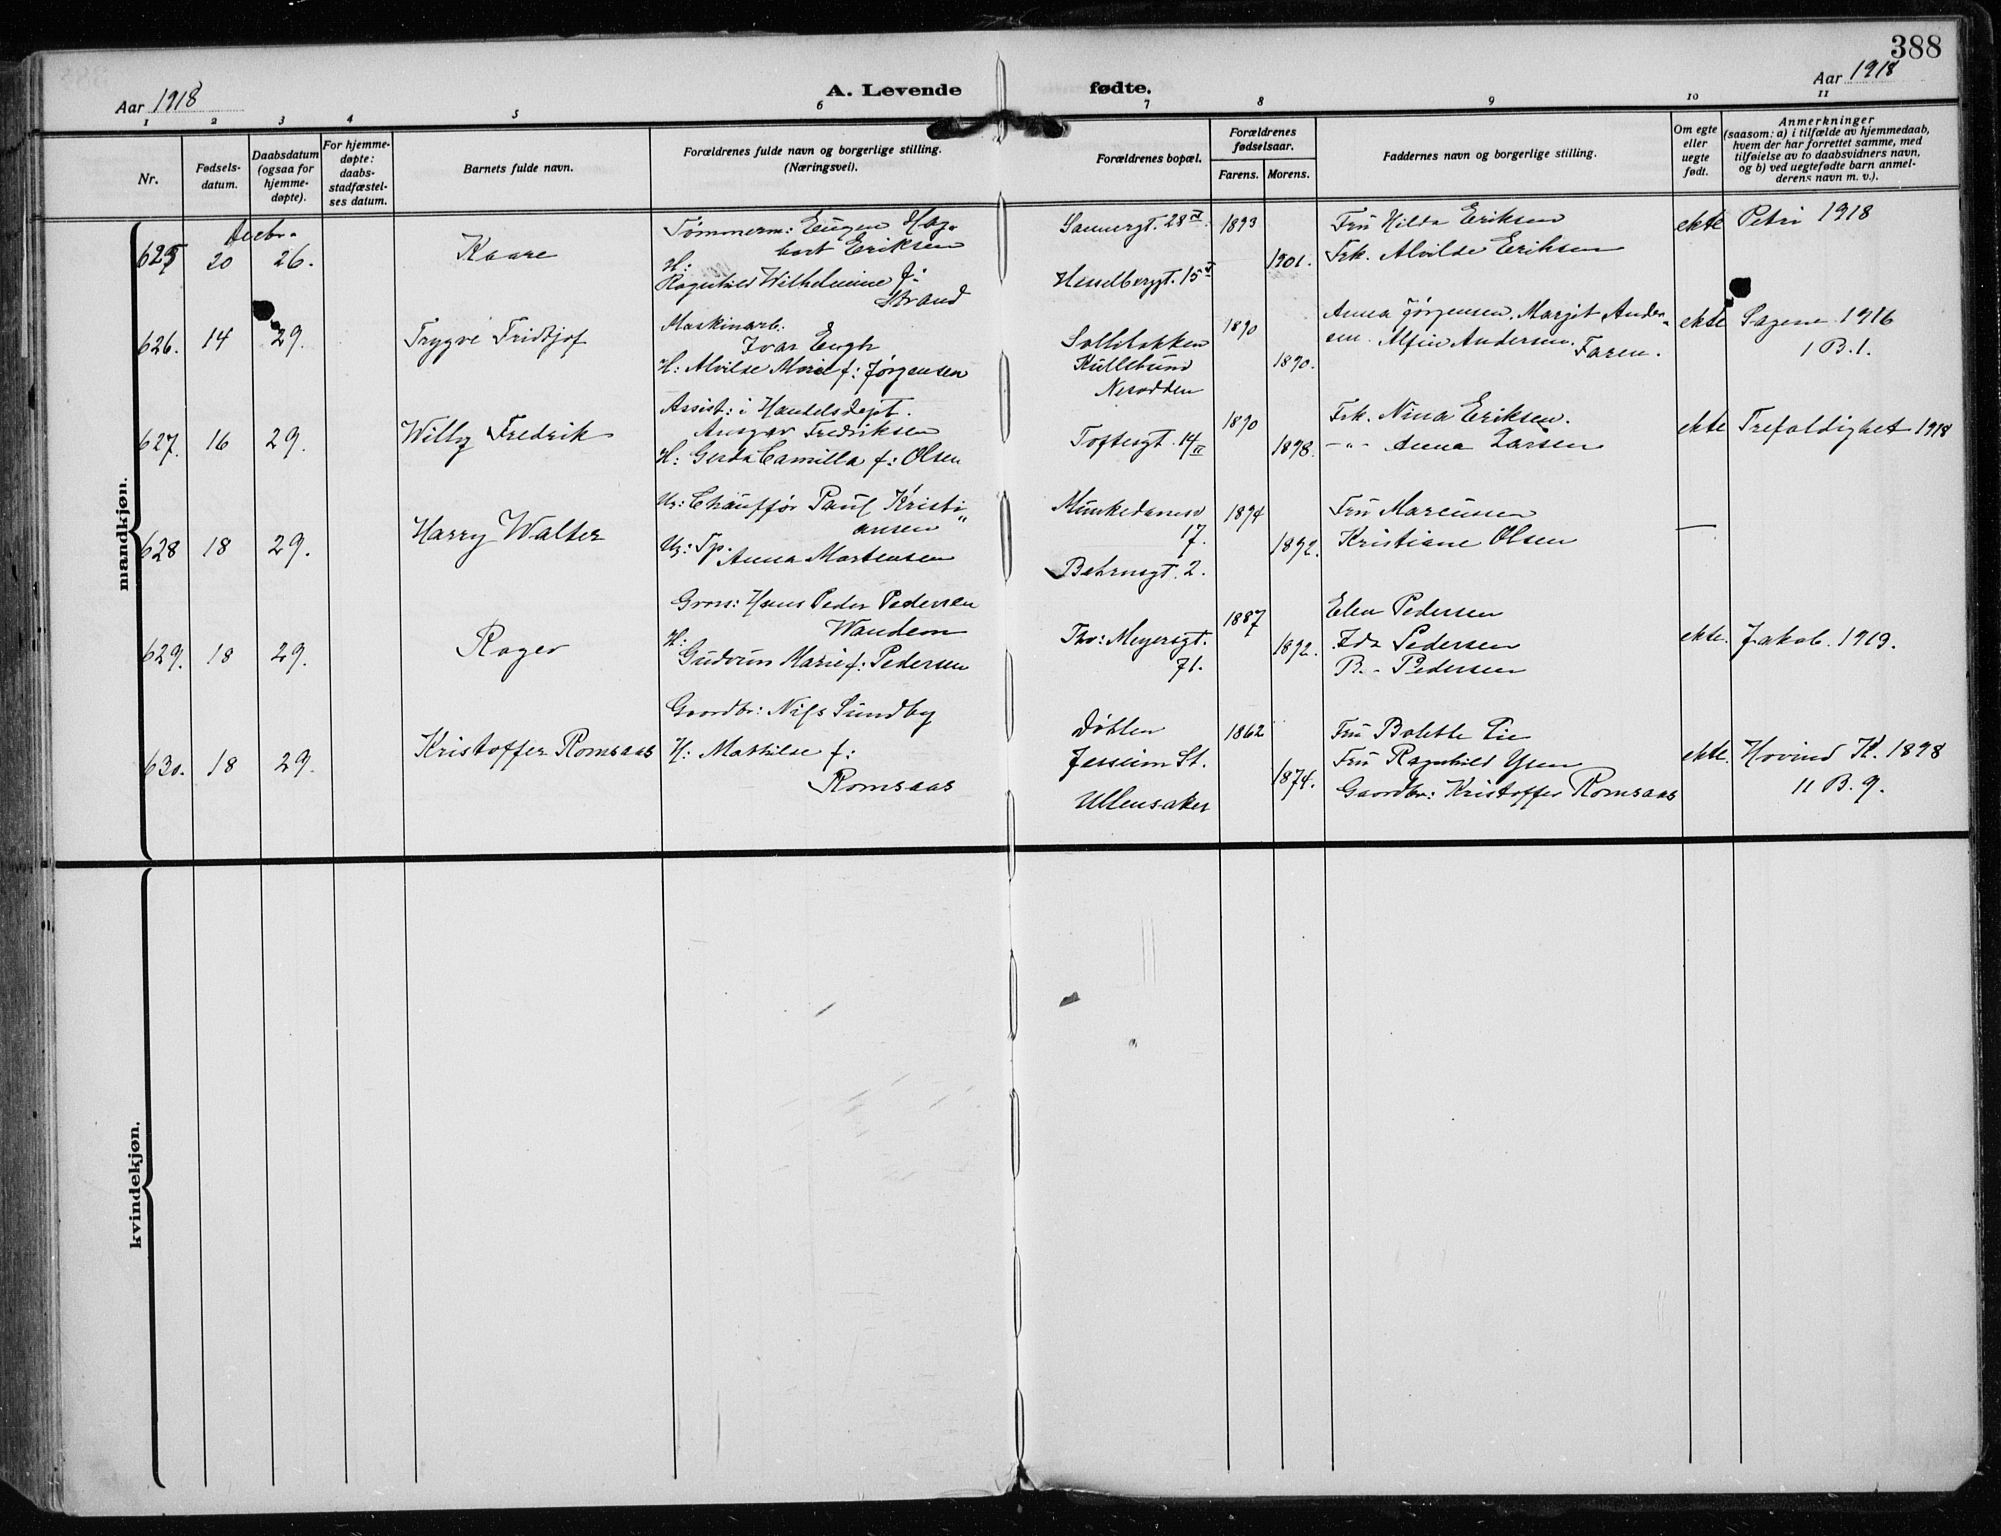 388
Aar 1918
A. Levende fødte.
Aar 1918
1 2 3 4 5 6 7 8 9 10 11
Nr.
Fødsels-
datum.
Daabsdatum
(ogsaa for
hjemme-
døpte).
For hjemme-
døpte:
daabs-
stadfæstel-
ses datum.
Barnets fulde navn.
Forældrenes fulde navn og borgerlige stilling.
(Næringsvei).
Forældrenes bopæl.
Forældrenes
fødselsaar.
Farens. Morens.
Faddernes navn og borgerlige stilling.
Om egte
eller
uegte
født.
Anmerkninger
(saasom: a) i tilfælde av hjemmedaab,
hvem der har forrettet samme, med
tilføielse av to daabsvidners navn,
og b) ved uegtefødte barn anmel-
derens navn m. v.).
mandkjøn.
Decbr.
625 20 26. Kaare
Tømmerm: Eugen Hag-
bart Eriksen
H:
Ragnhild Wilhelmine f:
Strand
Sannergt. 28
Hesselbergt. 15
1893
1901.
Fru Hilda Eriksen
Frk. Alvilde Eriksen
ekte Petri 1918
626. 14 29. Trygve Fridtjof
Maskinarb.
Ivar Engh
H: Alvilde Marie f: Jørgensen
Solbakken
Nesodden
1890
1890.
Anna Jørgensen. Margit Ander-
sen. Andersen.
Faren.
ekte Sagene 1916
1 B. 1.
627. 16 29. Willy Fredrik
Assist: i Handelsdept.
Ansgar Fredriksen
H: Gerda Camilla f: Olsen
Toftesgt. 14 II
1890
1898.
Frk. Nina Eriksen.
-"- Anna Larsen
ekte Trefoldighet 1918
628 18 29. Harry Walter
Ug: Chauffør Paul Kristi-
ansen
Ug: Tp.
Anna Martensen
Munkedamsv
17.
Behrnsgt. 2.
1894
1892.
Fru Marcussen
Kristiane Olsen
—
629. 18 29. Roger
Gros: Hans Peder Pedersen
Wandem
H:
Gudrun Marie f: Pedersen
Thv: Meyersgt.
71.
1887
1892.
Elen Pedersen
Ida Pedersen
R. Pedersen
ekte. Jakob. 1913.
630. 18 29. Kristoffer Romsaas
Gaardbr: Nils Sundby
H: Mathilde f:
Romsaas
Døhlen
Jessheim St.
Ullensaker
1862
1874.
Fru Bolette Lie
Fru Ragnhild
Gaardbr: Kristoffer Romsaas
ekte. Hovind K. 1898
11 B. 9.
kvindekjøn.